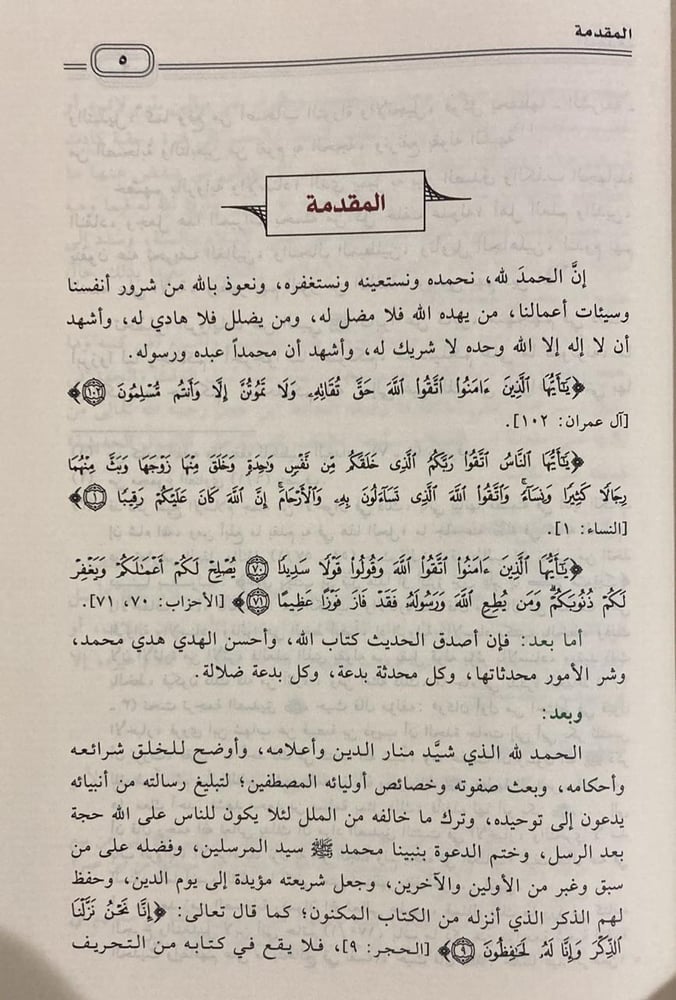 المقدمة
٥
المقدمة
إنَّ الحمدَ لله، نحمده ونستعينه ونستغفره، ونعوذ بالله من شرور أنفسنا
وسيئات أعمالنا، من يهده الله فلا مضل له، ومن يضلل فلا هادي له، وأشهد
أن لا إله إلا الله وحده لا شريك له، وأشهد أن محمداً عبده ورسوله.
﴿يَٰٓأَيُّهَا ٱلَّذِينَ ءَامَنُوا۟ ٱتَّقُوا۟ ٱللَّهَ حَقَّ تُقَاتِهِۦ وَلَا تَمُوتُنَّ إِلَّا وَأَنتُم مُّسْلِمُونَ ١٠٢﴾
[آل عمران: ١٠٢].
﴿يَٰٓأَيُّهَا ٱلنَّاسُ ٱتَّقُوا۟ رَبَّكُمُ ٱلَّذِى خَلَقَكُم مِّن نَّفْسٍ وَٰحِدَةٍ وَخَلَقَ مِنْهَا زَوْجَهَا وَبَثَّ مِنْهُمَا
رِجَالًا كَثِيرًا وَنِسَآءً ۚ وَٱتَّقُوا۟ ٱللَّهَ ٱلَّذِى تَسَآءَلُونَ بِهِۦ وَٱلْأَرْحَامَ ۚ إِنَّ ٱللَّهَ كَانَ عَلَيْكُمْ رَقِيبًا ١﴾
[النساء: ١].
﴿يَٰٓأَيُّهَا ٱلَّذِينَ ءَامَنُوا۟ ٱتَّقُوا۟ ٱللَّهَ وَقُولُوا۟ قَوْلًا سَدِيدًا ٧٠ يُصْلِحْ لَكُمْ أَعْمَٰلَكُمْ وَيَغْفِرْ
لَكُمْ ذُنُوبَكُمْ ۗ وَمَن يُطِعِ ٱللَّهَ وَرَسُولَهُۥ فَقَدْ فَازَ فَوْزًا عَظِيمًا ٧١﴾ [الأحزاب: ٧٠، ٧١].
أما بعد: فإن أصدق الحديث كتاب الله، وأحسن الهدي هدي محمد،
وشر الأمور محدثاتها، وكل محدثة بدعة، وكل بدعة ضلالة.
وبعد:
الحمد لله الذي شيَّد منار الدين وأعلامه، وأوضح للخلق شرائعه
وأحكامه، وبعث صفوته وخصائص أوليائه المصطفين؛ لتبليغ رسالته من أنبيائه
يدعون إلى توحيده، وترك ما خالفه من الملل لئلا يكون للناس على الله حجة
بعد الرسل، وختم الدعوة بنبينا محمد ﷺ سيد المرسلين، وفضله على من
سبق وغبر من الأولين والآخرين، وجعل شريعته مؤيدة إلى يوم الدين، وحفظ
لهم الذكر الذي أنزله من الكتاب المكنون؛ كما قال تعالى: ﴿إِنَّا نَحْنُ نَزَّلْنَا
ٱلذِّكْرَ وَإِنَّا لَهُۥ لَحَٰفِظُونَ ٩﴾ [الحجر: ٩]، فلا يقع في كتابه من التحريف